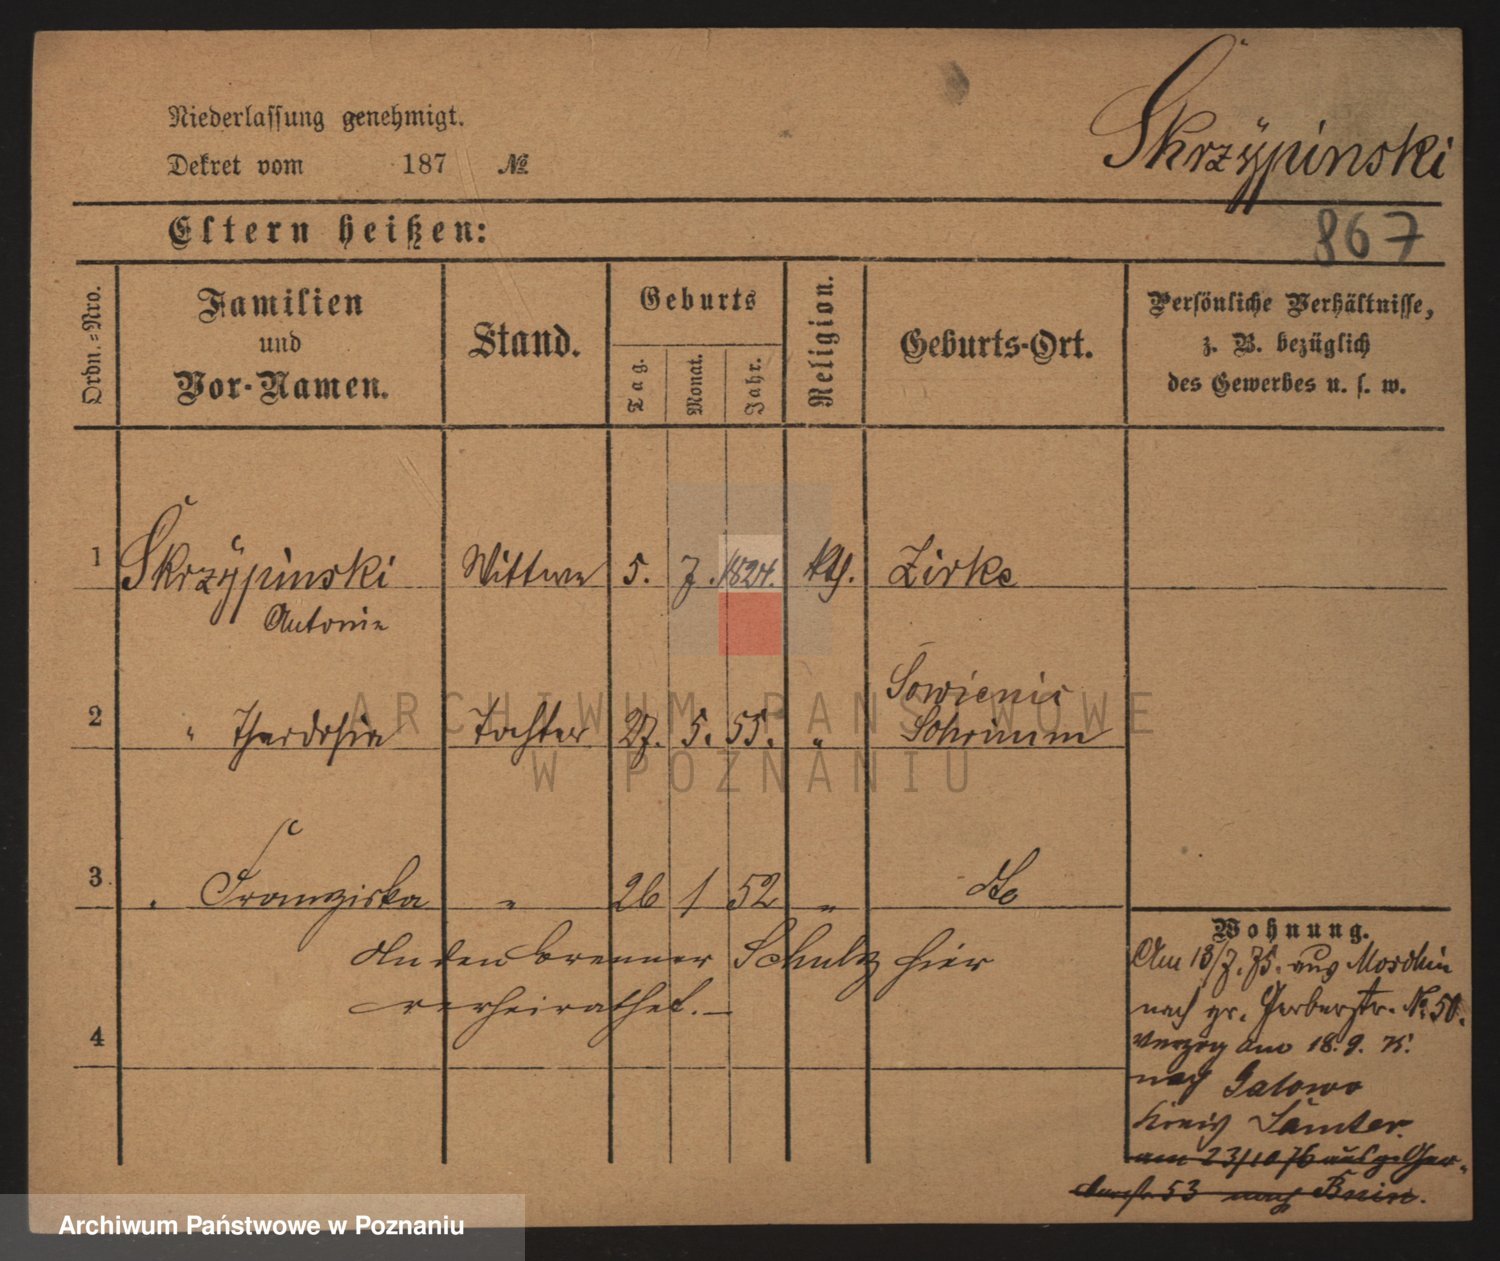 Niederlassung genehmigt.
Skrzypinski
Dekret vom 187 №
Eltern heißen:
867
Ordn.-Nro.
Familien
und
Vor-Namen.
Stand.
Geburts
Tag.
Monat.
Jahr.
Religion.
Geburts-Ort.
Persönliche Verhältnisse,
z. B. bezüglich
des Gewerbes u. s. w.
1 Skrzypinski Wittwe 5. 7. 1824. kth. Zirke
Antonie
Sowienic
2 " Theodosia Tochter 27. 5. 55. " Schrimm
3 " Franziska " 26 1 52 " do
An den Brenner Schultz hier
verheirathet. —
4
Wohnung.
Am 13/7. 75. aus Moschin
nach gr. Gerberstr. No. 50.
verzog am 18. 9. 75.
nach Galowo
Kreis Samter.
am 23/10 76 aus gr. Ger-
berstr. 53 nach Bnin.
ARCHIWUM PAŃSTWOWE
W POZNANIU
Archiwum Państwowe w Poznaniu